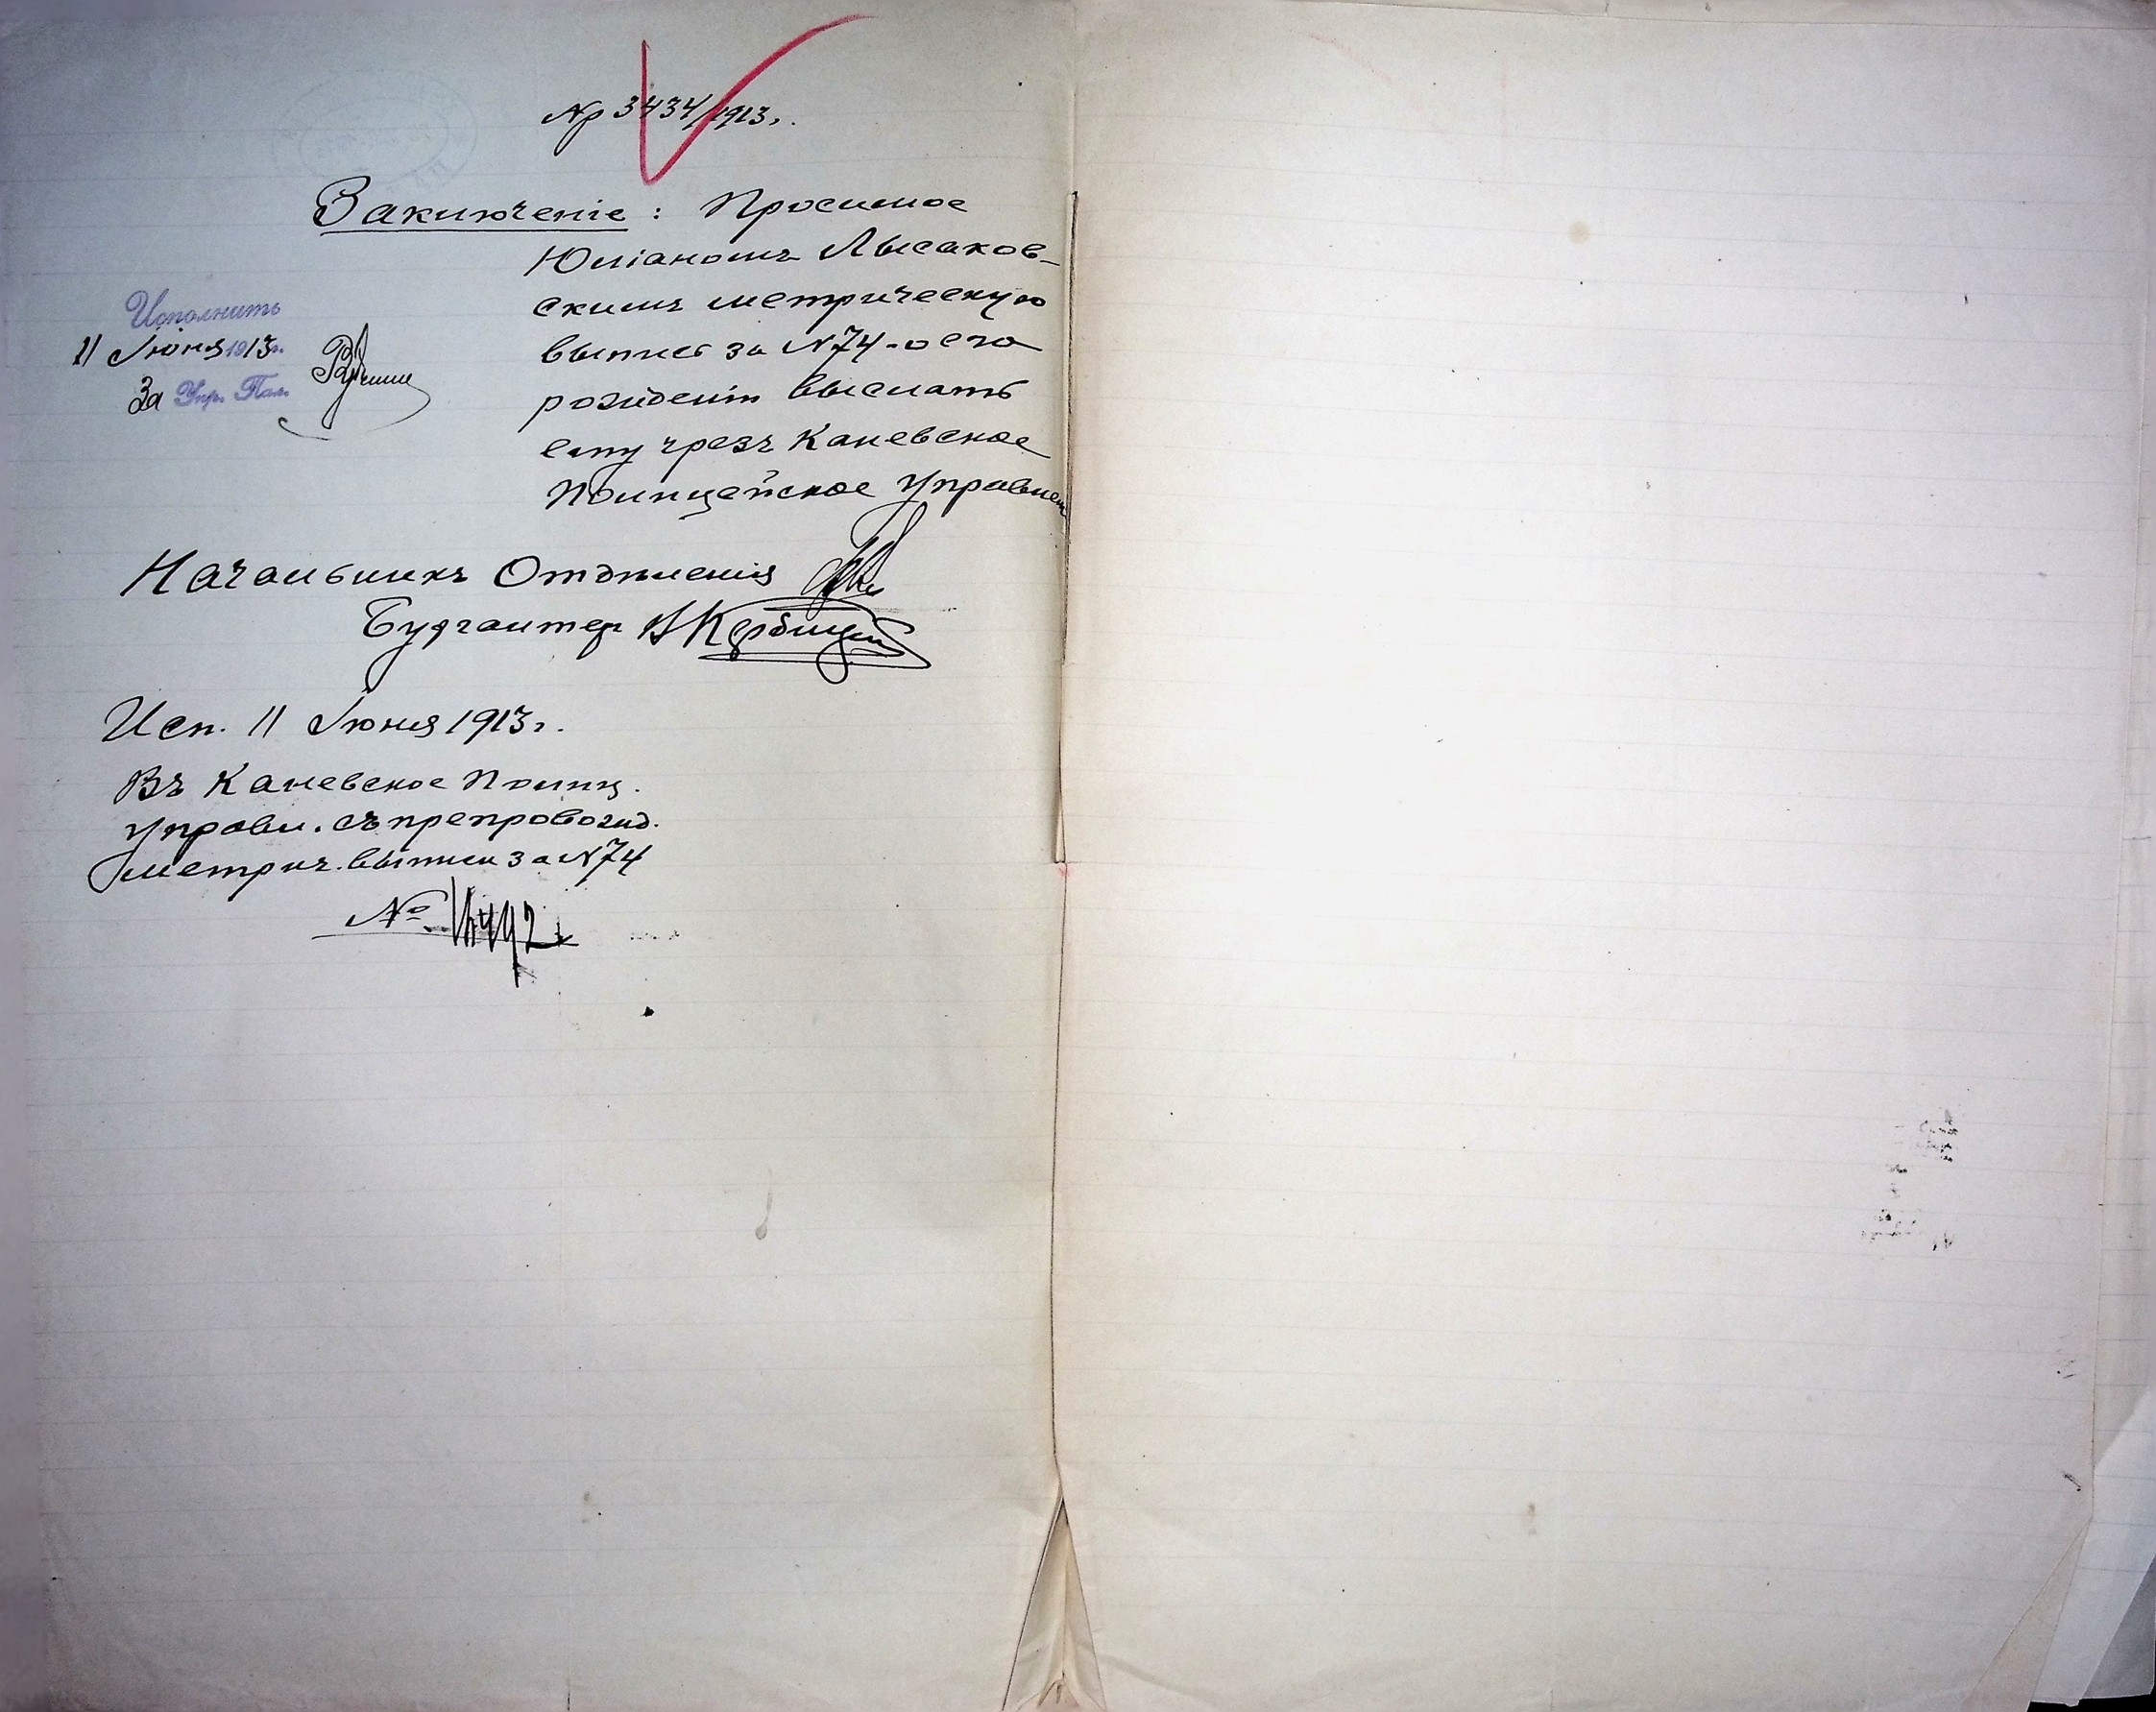 Nр 3434/1913г.
Заключеніе: Просимое
Юліаномъ Лысаков-
скимъ метрическую
выпись за N74-о его
рожденіи выслать
ему чрезъ Каневское
Полицейское Управлен
Исполнить
11 Іюня 1913г.
За Упр. Пал.
Начальникъ Отдѣленія
Бухгалтер
Исп. 11 Іюня 1913г.
Въ Каневское Полиц.
Управл. съ препровожд.
метрич. выписи за N74
№